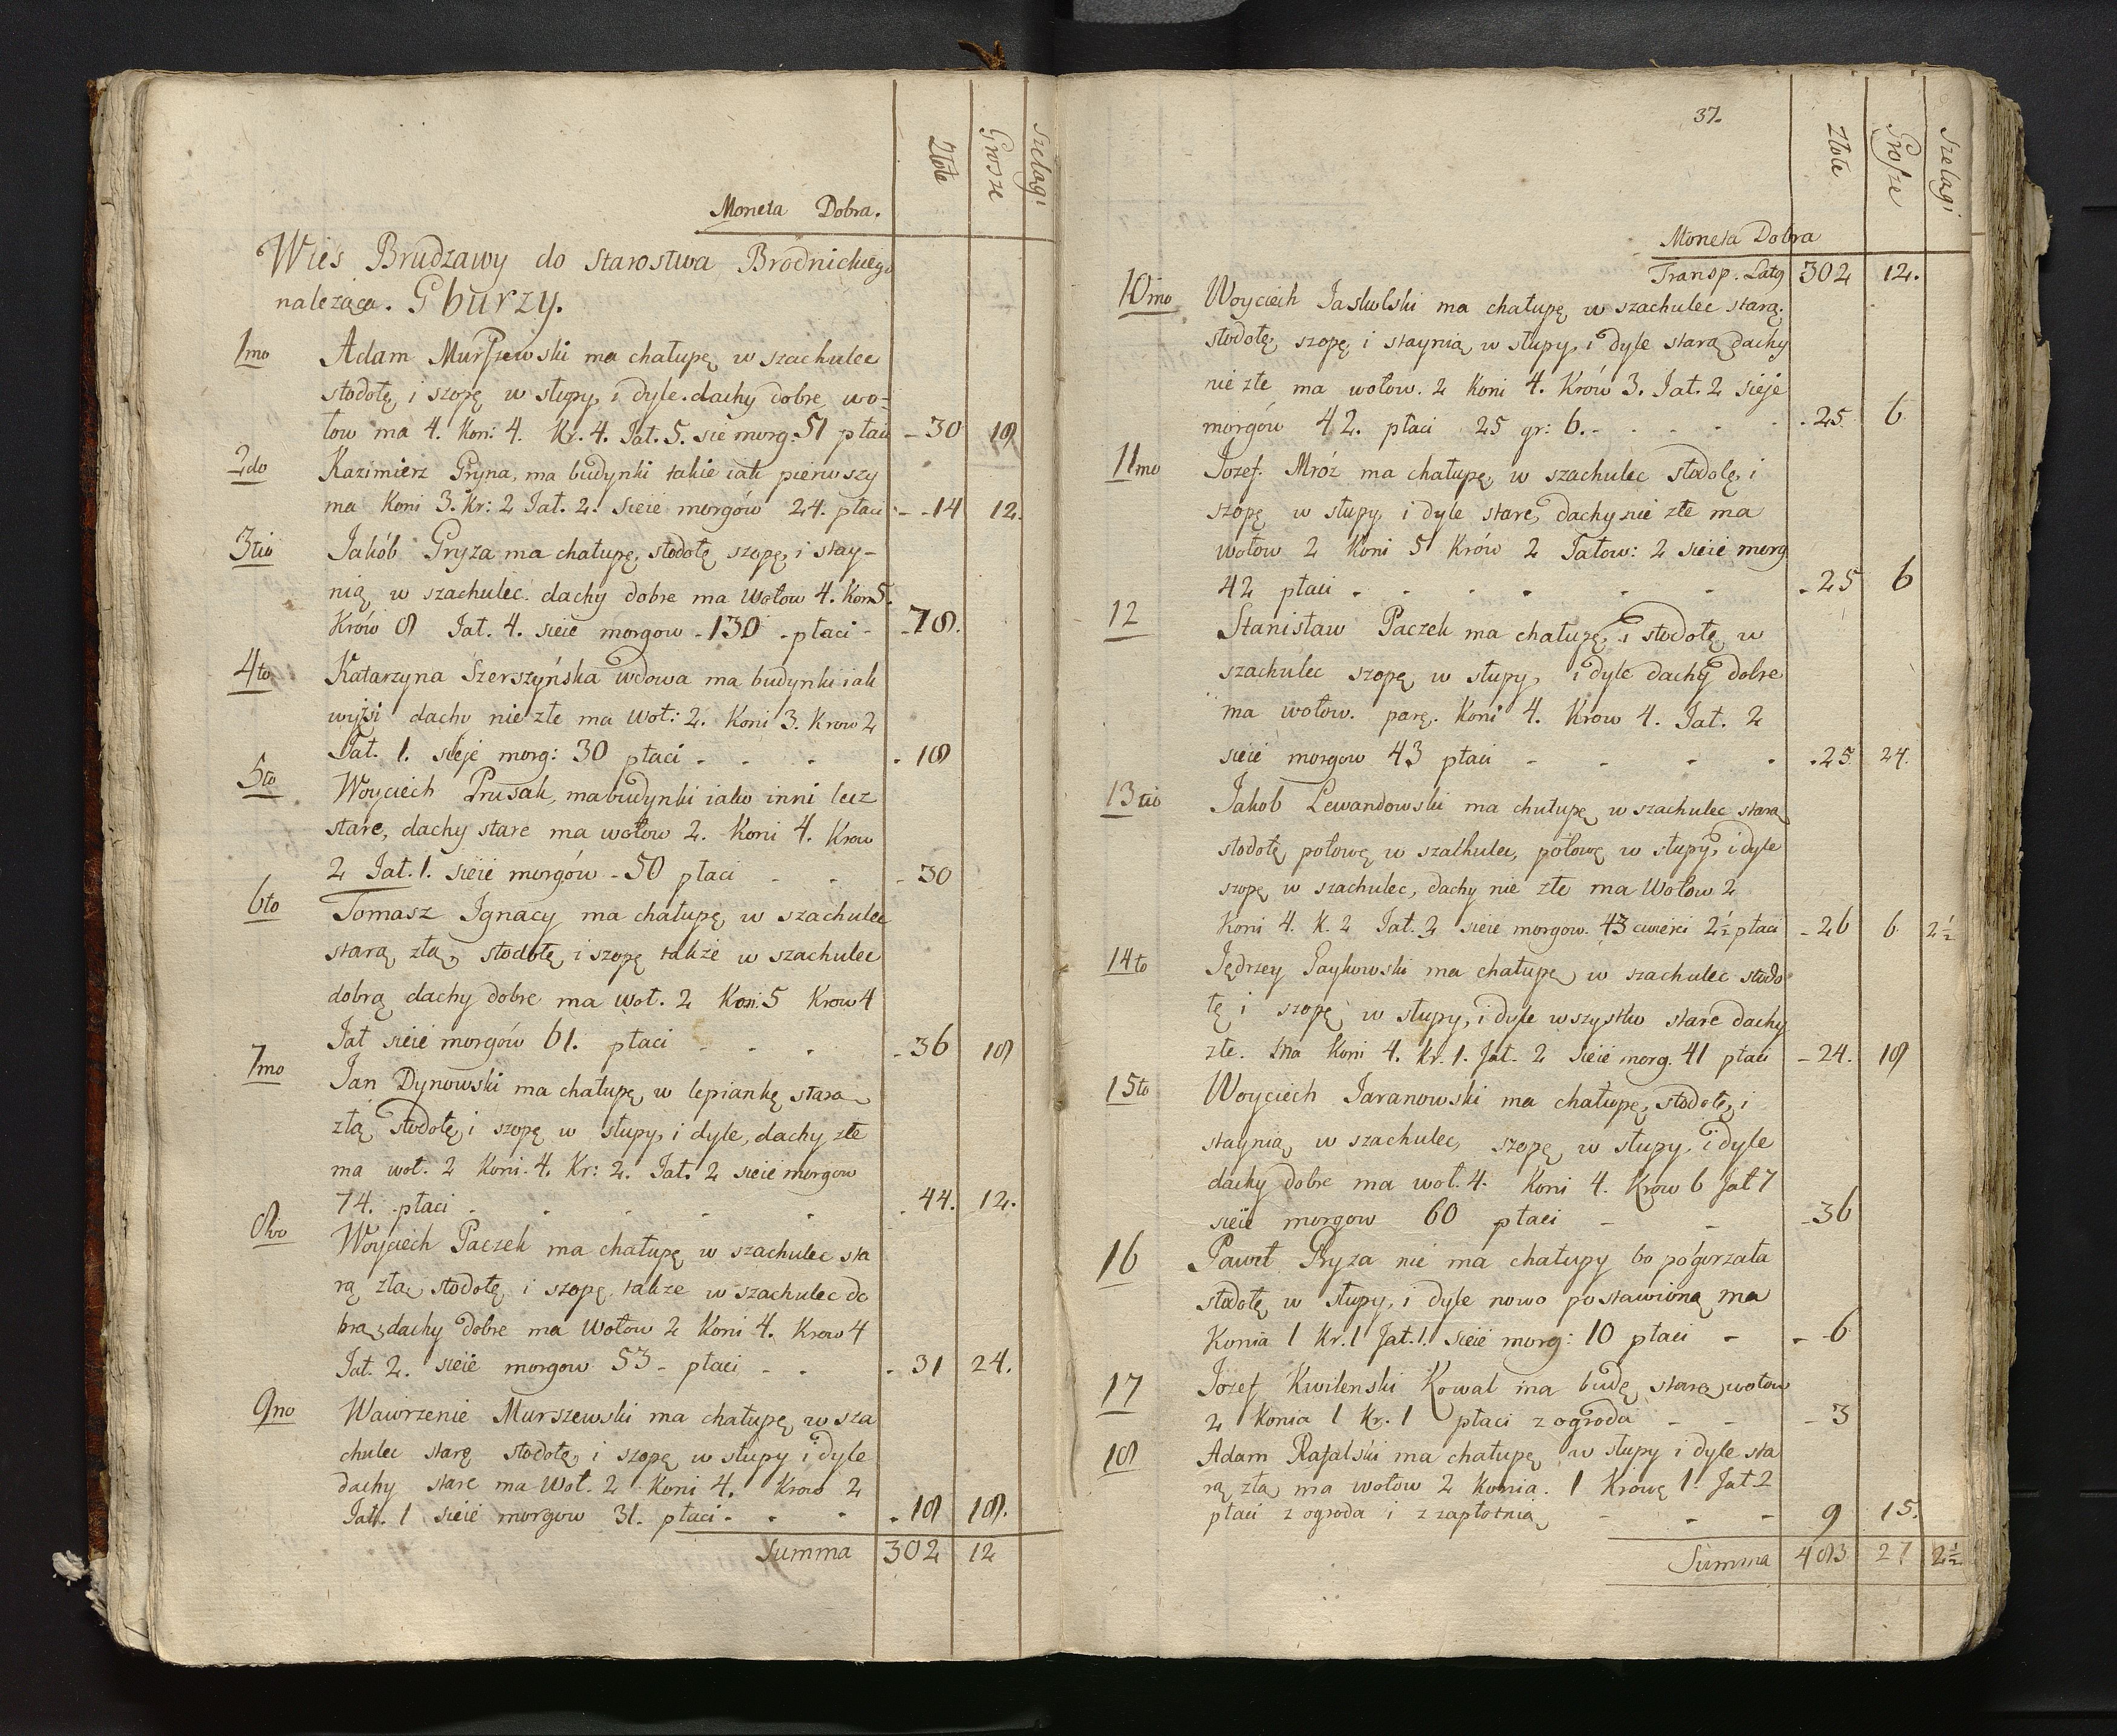 Złote
Grosze
Szelągi
Moneta Dobra.
Wieś Brudzawy do Starostwa Brodnickiego
należąca. Gburzy.
1mo Adam Murszewski ma chałupę w szachulec
stodołę i szopę w słupy i dyle. dachy dobre wo-
łow ma 4. Koni 4. Kr. 4. Jał. 5. sie morg. 51 płaci - 30 18
2do Kazimierz Gryna, ma budynki takie iak pierwszy
ma Koni 3. Kr: 2 Jał. 2. sieie morgów 24. płaci - 14 12.
3tio Jakób Gryza ma chałupę, stodołę szopę i stay-
nią w szachulec. dachy dobre ma Wołow 4. Koni 5.
Krów 8 Jał. 4. sieie morgow - 130 - płaci - 78.
4to Katarzyna Szerszyńska wdowa ma budynki iak
wyżsi dachy nie złe ma Woł: 2. Koni 3. Krow 2
Jał. 1. sieje morg: 30 płaci - - - 18
5to Woyciech Prusak, ma budynki iako inni lecz
stare, dachy stare ma wołow 2. Koni 4. Krow
2 Jał. 1. sieie morgów - 50 płaci - - - 30
6to Tomasz Ignacy ma chałupę w szachulec
starą złą, stodołę i szopę także w szachulec
dobrą dachy dobre ma woł. 2 Koni 5 Krow 4
Jał sieie morgów 61. płaci - - - 36 18
7mo Jan Dynowski ma chałupę w lepiankę stara
złą stodołę i szopę w słupy i dyle, dachy złe
ma woł. 2 Koni. 4. Kr: 2. Jał. 2 sieie morgow
74. płaci - - - - - 44. 12.
8vo Woyciech Paczek ma chałupę w szachulec sta
rą złą, stodołę i szopę także w szachulec do
brą, dachy dobre ma Wołow 2 Koni 4. Krow 4
Jał. 2. sieie morgow 53 - płaci - - - 31 24.
9no Wawrzenie Murszewski ma chałupę w sza
chulec starę stodołę i szopę w słupy i dyle
dachy stare ma Woł. 2 Koni 4. Krow 2
Jał. 1 sieie morgow 31. płaci - - - 18 18.
Summa 302 12
37.
Złote
Grosze
Szelągi
Moneta Dobra
Transp. Latg 302 12.
10mo Woyciech Jaskolski ma chałupę w szachulec starą.
stodołę, szopę i staynią w słupy i dyle starą dachy
nie złe ma wołow. 2 Koni 4. Krów 3. Jał. 2 sieje
morgów 42. płaci 25 gr: 6. - - - - 25 6
11mo Jozef Mróz ma chałupę w szachulec stodołę i
szopę w słupy i dyle stare, dachy nie złe ma
wołow 2 Koni 5 Krów 2 Jałow: 2 sieie morg
42 płaci - - - - - - 25 6
12 Stanisław Paczek ma chałupę i stodołę w
szachulec szopę w słupy i dyle dachy dobre
ma wołow. parę. Koni 4. Krow 4. Jał. 2
sieie morgow 43 płaci - - - - 25 24.
13tio Jakob Lewandowski ma chułupę w szachulec stara
stodołę połowę w szachulec, połowę w słupy i dyle
szopę w szachulec, dachy nie złe ma Wołow 2
Koni 4. K. 2 Jał. 2 sieie morgow. 43 cwierci 2½ płaci - 26 6 2½
14to Jędrzey Gaykowski ma chałupę w szachulec stodo
łę i szopę w słupy, i dyle wszystko stare dachy
złe. ma Koni 4. Kr. 1. Jał. 2 sieie morg. 41 płaci - 24. 18
15to Woyciech Jaranowski ma chałupę, stodołę i
staynią w szachulec, szopę w słupy, i dyle
dachy dobre ma woł. 4. Koni 4. Krow 6 Jał 7
sieie morgow 60 płaci - - - 36
16 Paweł Gryza nie ma chałupy bo pogorzała
stodołę w słupy, i dyle nowo postawioną ma
Konia 1 Kr. 1 Jał. 1. sieie morg: 10 płaci - - 6
17 Jozef Kwilenski Kowal ma budę starą wołow
2 Konia 1 Kr. 1 płaci z ogroda - - - 3
18 Adam Rafalski ma chałupę w słupy i dyle sta
rą złą ma wołow 2 Konia. 1 Krowę 1. Jał 2
płaci z ogroda i z zapłotnią - - - 9 15.
Summa 483 27 2½